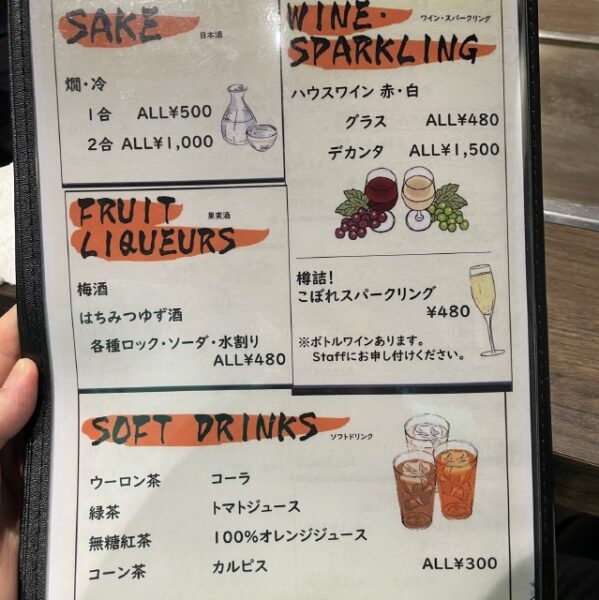 SAKE 日本酒
燗・冷
1合 ALL¥500
2合 ALL¥1,000
WINE・ ワイン・スパークリング
SPARKLING
ハウスワイン 赤・白
グラス ALL¥480
デカンタ ALL¥1,500
FRUIT 果実酒
LIQUEURS
梅酒
はちみつゆず酒
各種ロック・ソーダ・水割り
ALL¥480
樽詰!
こぼれスパークリング
¥480
※ボトルワインあります。
Staffにお申し付けください。
SOFT DRINKS ソフトドリンク
ウーロン茶 コーラ
緑茶 トマトジュース
無糖紅茶 100%オレンジジュース
コーン茶 カルピス ALL¥300